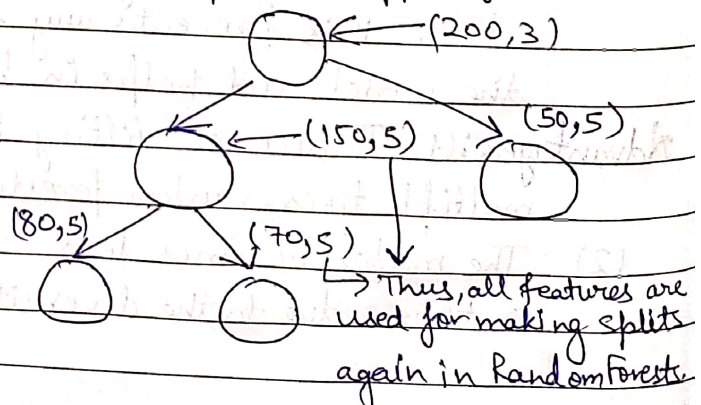 (200,3)
(50,5)
(150,5)
(80,5)
(70,5)
Thus, all features are
used for making splits
again in Random Forests.